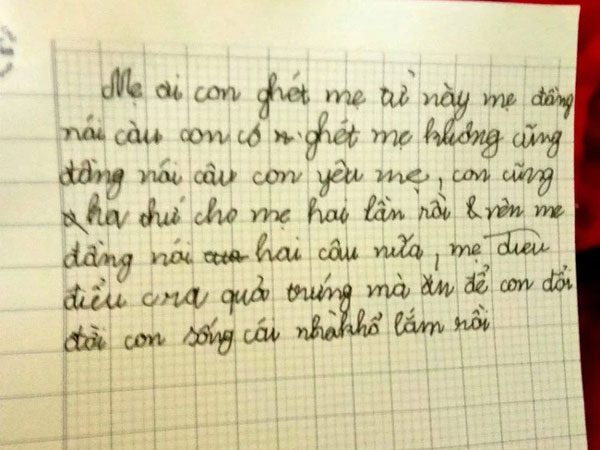 Mẹ ơi con ghét mẹ từ này mẹ đừng
nói câu con có ghét mẹ không cũng
đừng nói câu con yêu mẹ, con cũng
tha thứ cho mẹ hai lần rồi & nên mẹ
đừng nói hai câu nữa, mẹ
điều cra quả trứng mà ăn để con đổi
đời con sống cái nhà khổ lắm rồi